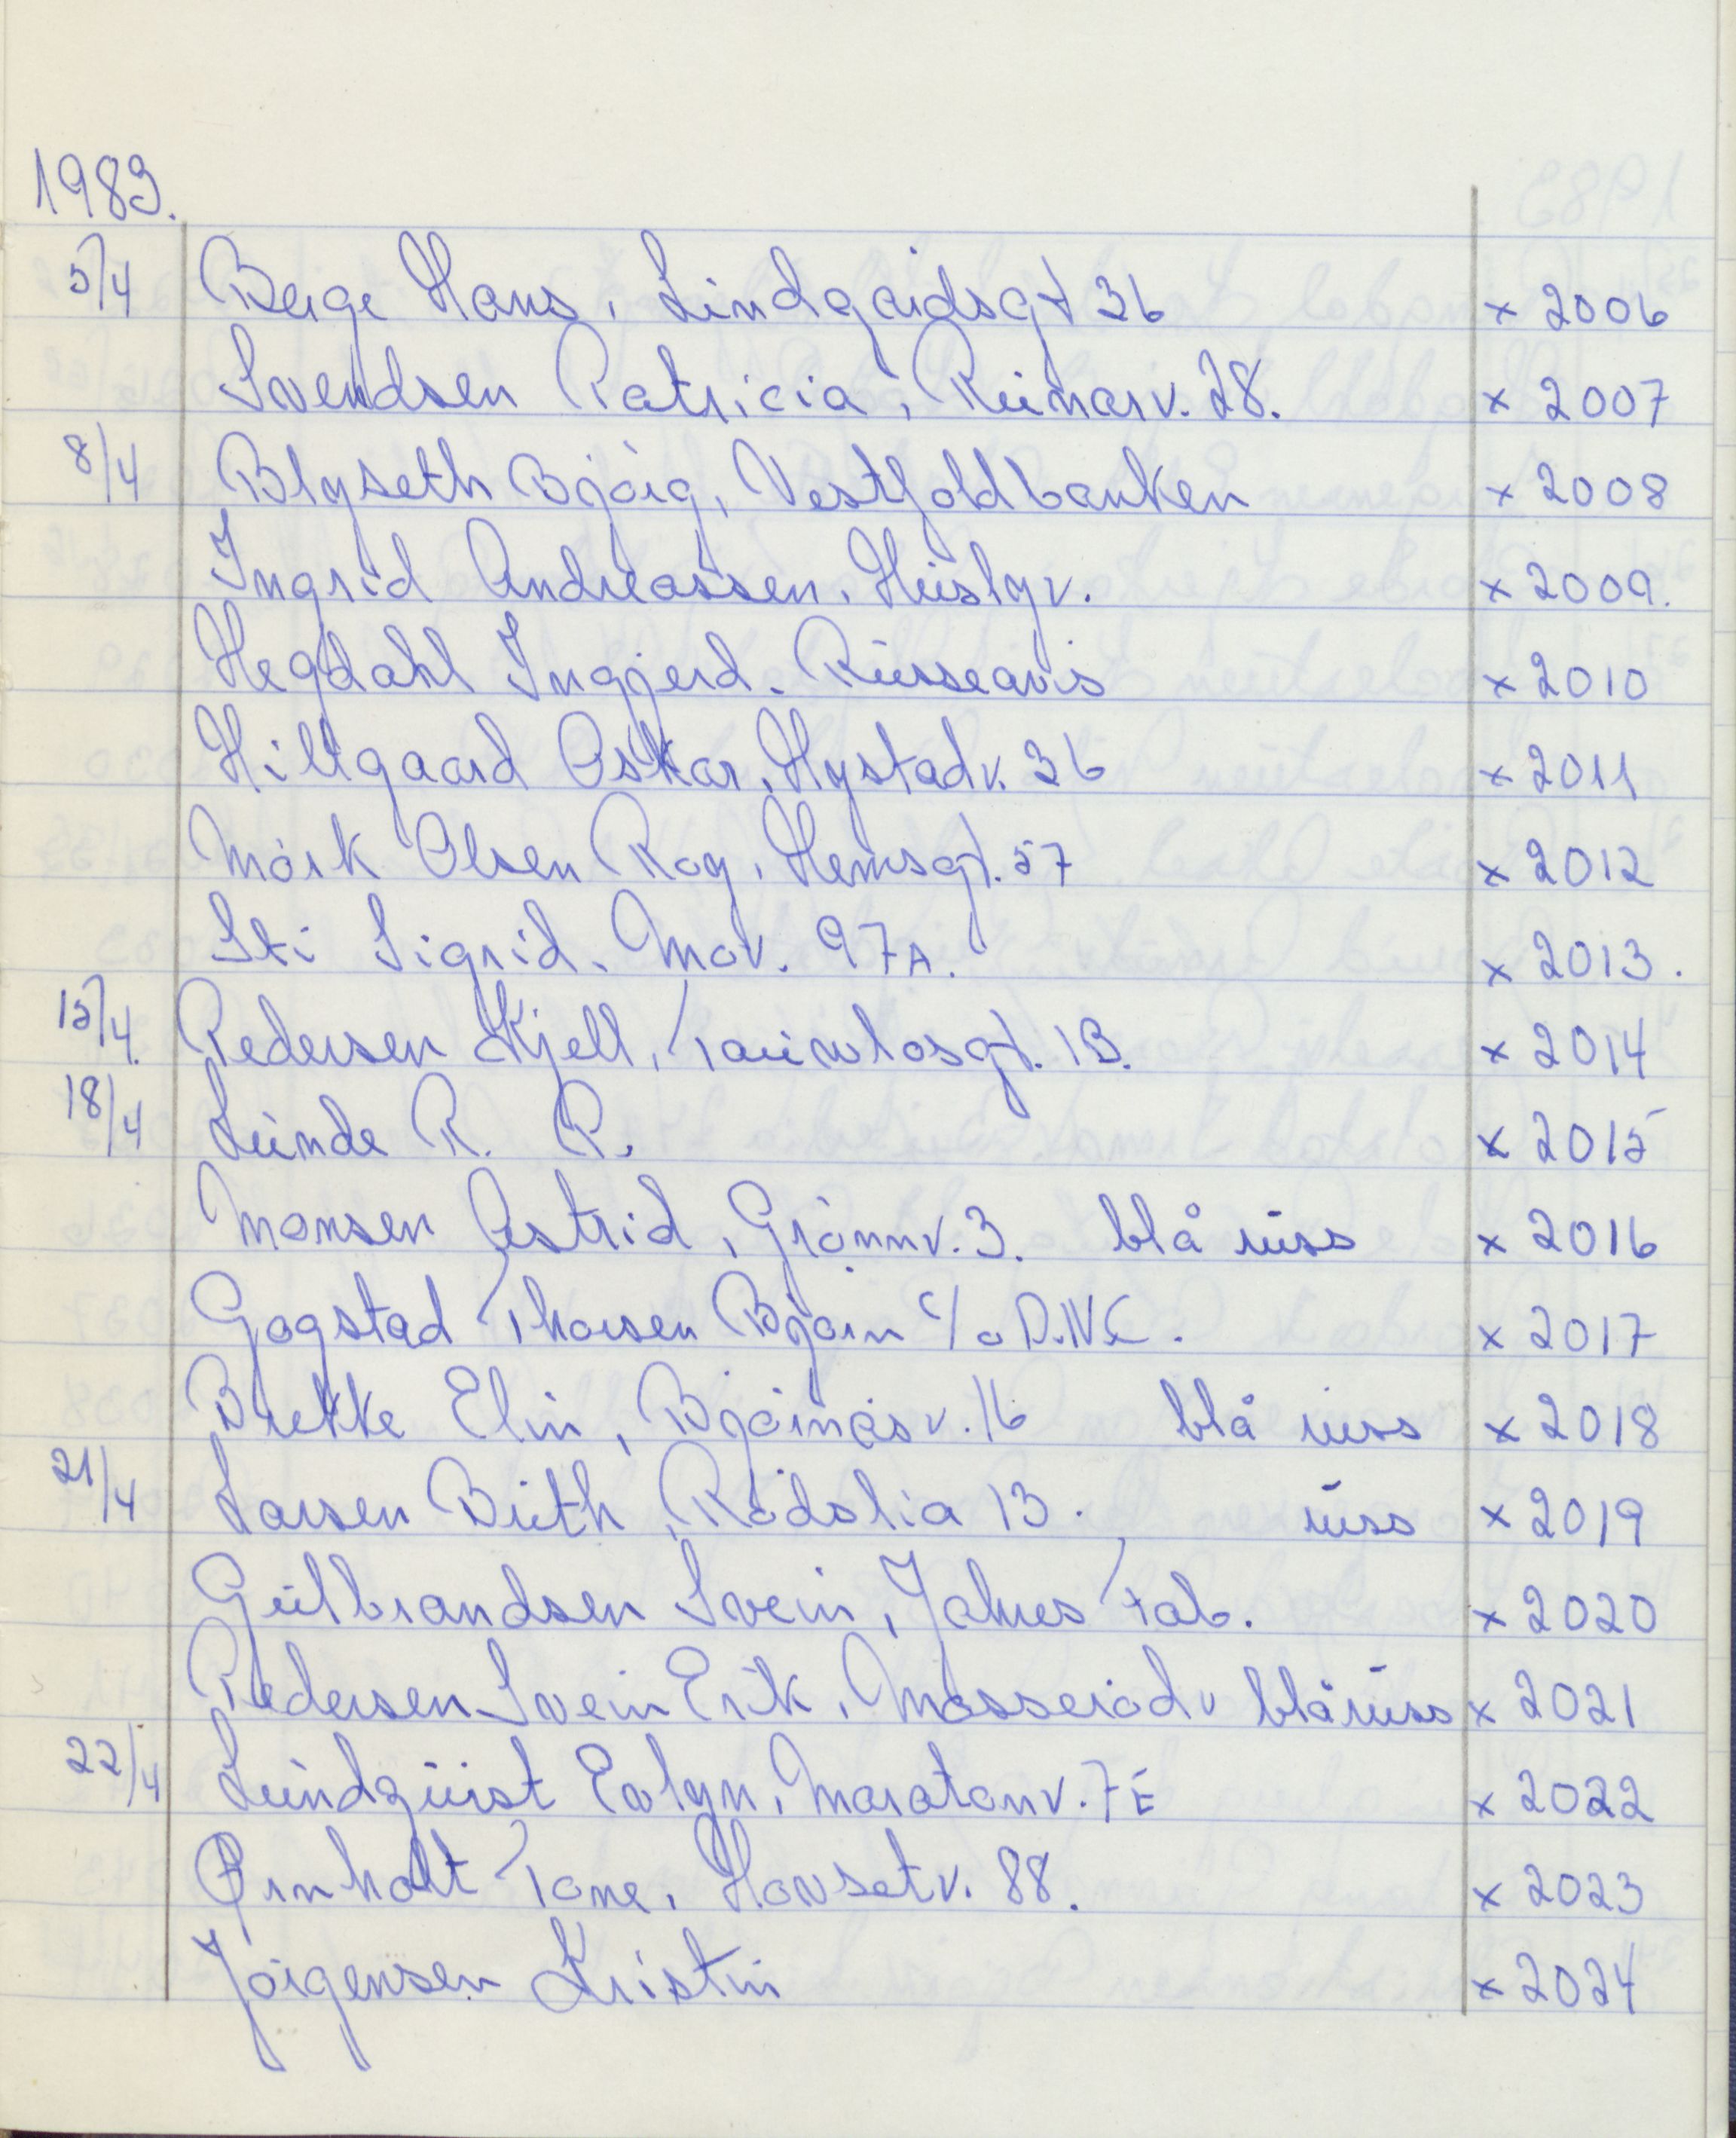 1983.
5/4 Berge Hans, Lindgårdsgt 36 x 2006
Svendsen Patricia, Runarv. 28. x 2007
8/4 Blyseth Bjørg, Vestfoldbanken x 2008
Ingrid Andreassen, Husbyv. x 2009.
Hegdahl Ingjerd. Russeavis x 2010
Hillgaard Oskar, Hystadv. 36 x 2011
Mørk Olsen Roy, Hemsgt. 57 x 2012
Sti Sigrid. Mov. 97A. x 2013.
15/4. Pedersen Kjell, Taunbosgt. 1B. x 2014
18/4 Lunde R. P. x 2015
Monsen Astrid, Grønnv. 3. blå russ x 2016
Gogstad Thorsen Bjørn c/o D.N.C. x 2017
Brekke Elin, Bjørnåsv. 16 blå russ x 2018
21/4 Larsen Brith, Rødslia 13. russ x 2019
Gulbrandsen Svein, Jahres Fab. x 2020
Pedersen Svein Erik, Mosserødv blåruss x 2021
22/4 Lundquist Evlyn, Maratonv. 7E x 2022
Ørnholt Tone, Hovsetv. 88. x 2023
Jørgensen Kristin x 2024